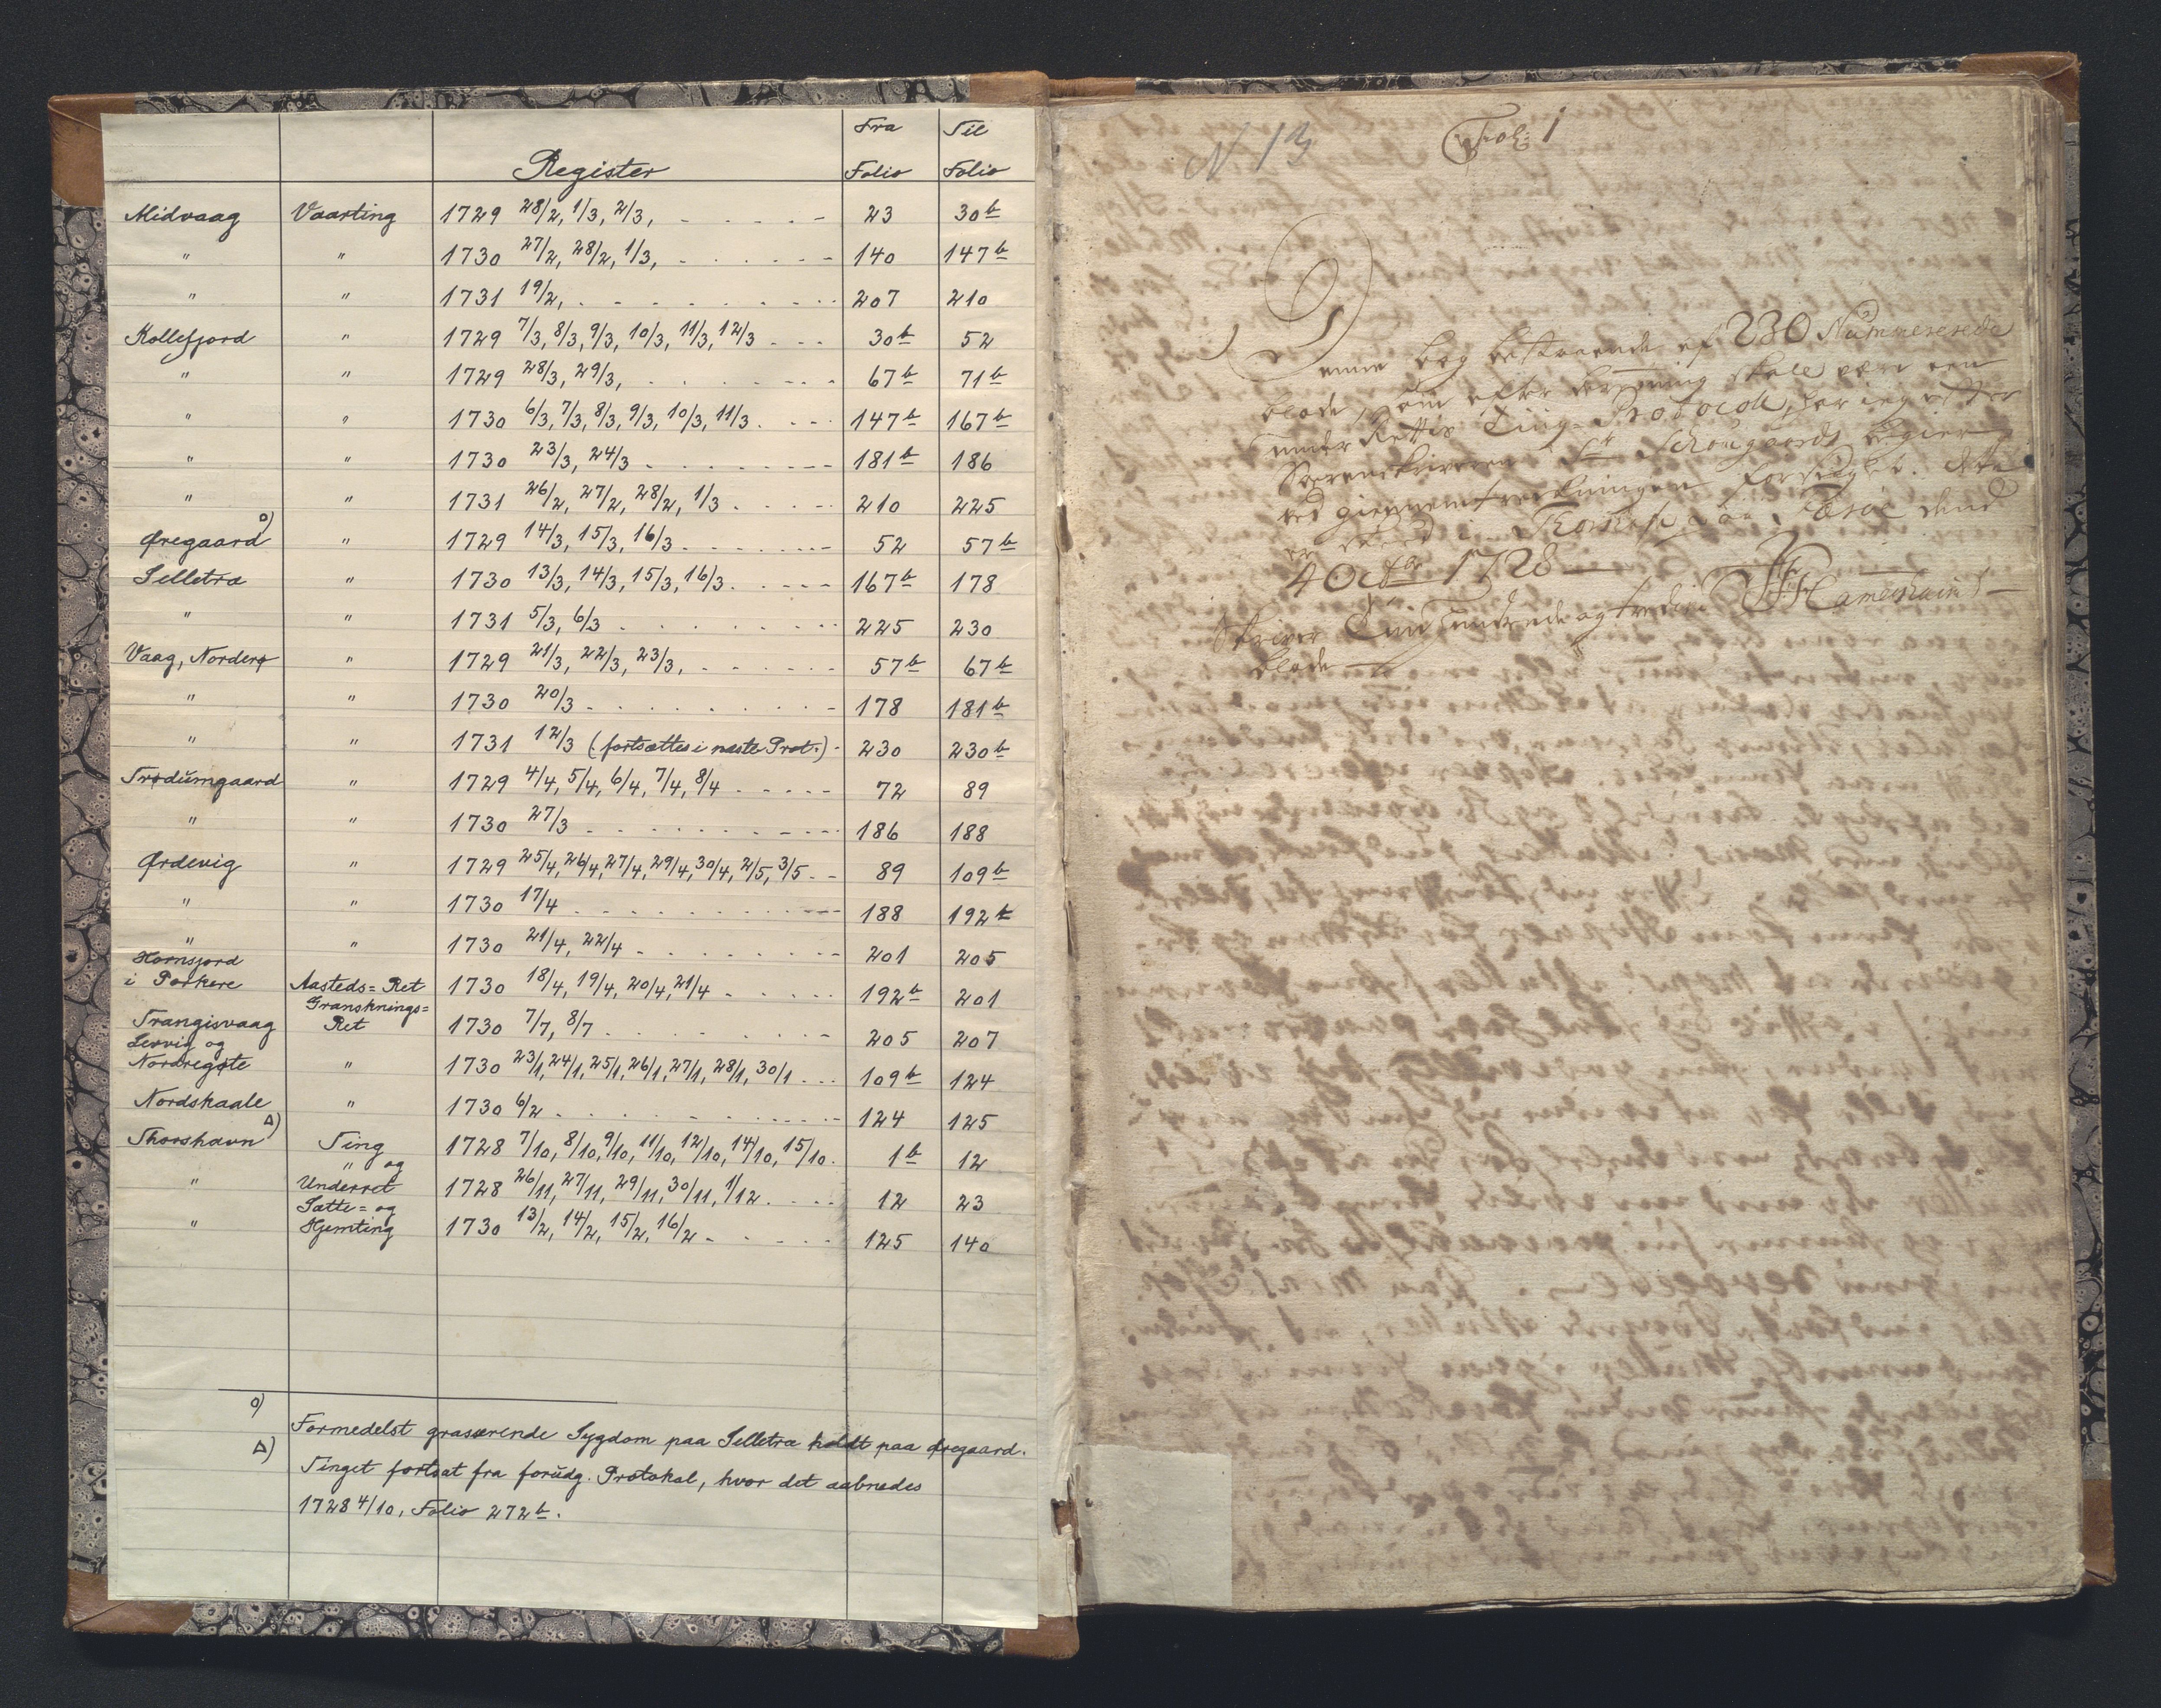 Fra Til
Register Folio Folio
Midvaag Vaarting 1729 28/2, 1/3, 2/3, 23 30b
" " 1730 27/2, 28/2, 1/3, 140 147b
" " 1731 19/2, 207 210
Kollefjord " 1729 7/3, 8/3, 9/3, 10/3, 11/3, 12/3 30b 52
" " 1729 28/3, 29/3, 67b 71b
" " 1730 6/3, 7/3, 8/3, 9/3, 10/3, 11/3 147b 167b
" " 1730 23/3, 24/3 181b 186
" " 1731 26/2, 27/2, 28/2, 1/3 210 225
Øregaard o) " 1729 14/3, 15/3, 16/3 52 57b
Selletræ " 1730 13/3, 14/3, 15/3, 16/3 167b 178
" " 1731 5/3, 6/3 225 230
Vaag, Norderø " 1729 21/3, 22/3, 23/3, 57b 67b
" " 1730 20/3 178 181b
" " 1731 12/3 (fortsættes i næste Prot.) 230 230b
Trødumgaard " 1729 4/4, 5/4, 6/4, 7/4, 8/4 72 89
" " 1730 27/3 186 188
Ørdevig " 1729 25/4, 26/4, 27/4, 29/4, 30/4, 2/5, 3/5 89 109b
" " 1730 17/4 188 192b
" " 1730 21/4, 22/4 201 205
Hornsjord
i Porkere Aasteds=Ret 1730 18/4, 19/4, 20/4, 21/4 192b 201
Gransknings=
Trangisvaag Ret 1730 7/7, 8/7 205 207
Lervig og
Nordregøte " 1730 23/1, 24/1, 25/1, 26/1, 27/1, 28/1, 30/1 109b 124
Nordskaale " 1730 6/2 124 125
Thorshavn Δ) Ting 1728 7/10, 8/10, 9/10, 11/10, 12/10, 14/10, 15/10 1b 12
" og
" Underret 1728 26/11, 27/11, 29/11, 30/11, 1/12 12 23
Sætte= og
" Hjemting 1730 13/2, 14/2, 15/2, 16/2 125 140
o) Formedelst grasserende Sygdom paa Selletræ holdt paa Øregaard.
Δ) Tinget fortsat fra forudg. Protokol, hvor det aabnedes
1728 4/10, Folio 272b.
N 13 Fol: 1
Denne bog bestaaende af 230 Nummererede
blade, som efter skall være een
under Rettis Ting-Protocoll, har ieg efter
Sorenskriveren Sr Schougaards
ved giennemtreckningen forseiglet. dette
Thorshafn paa Færøe dend
4 Octbr 1728
Skriver Tvuhundrede og tredive Hamershaimb
blade